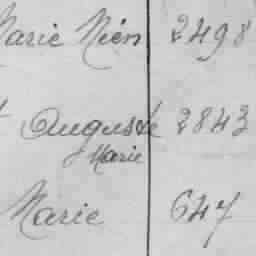 Marie Nien 2498
Auguste 2843
Marie
Marie 647